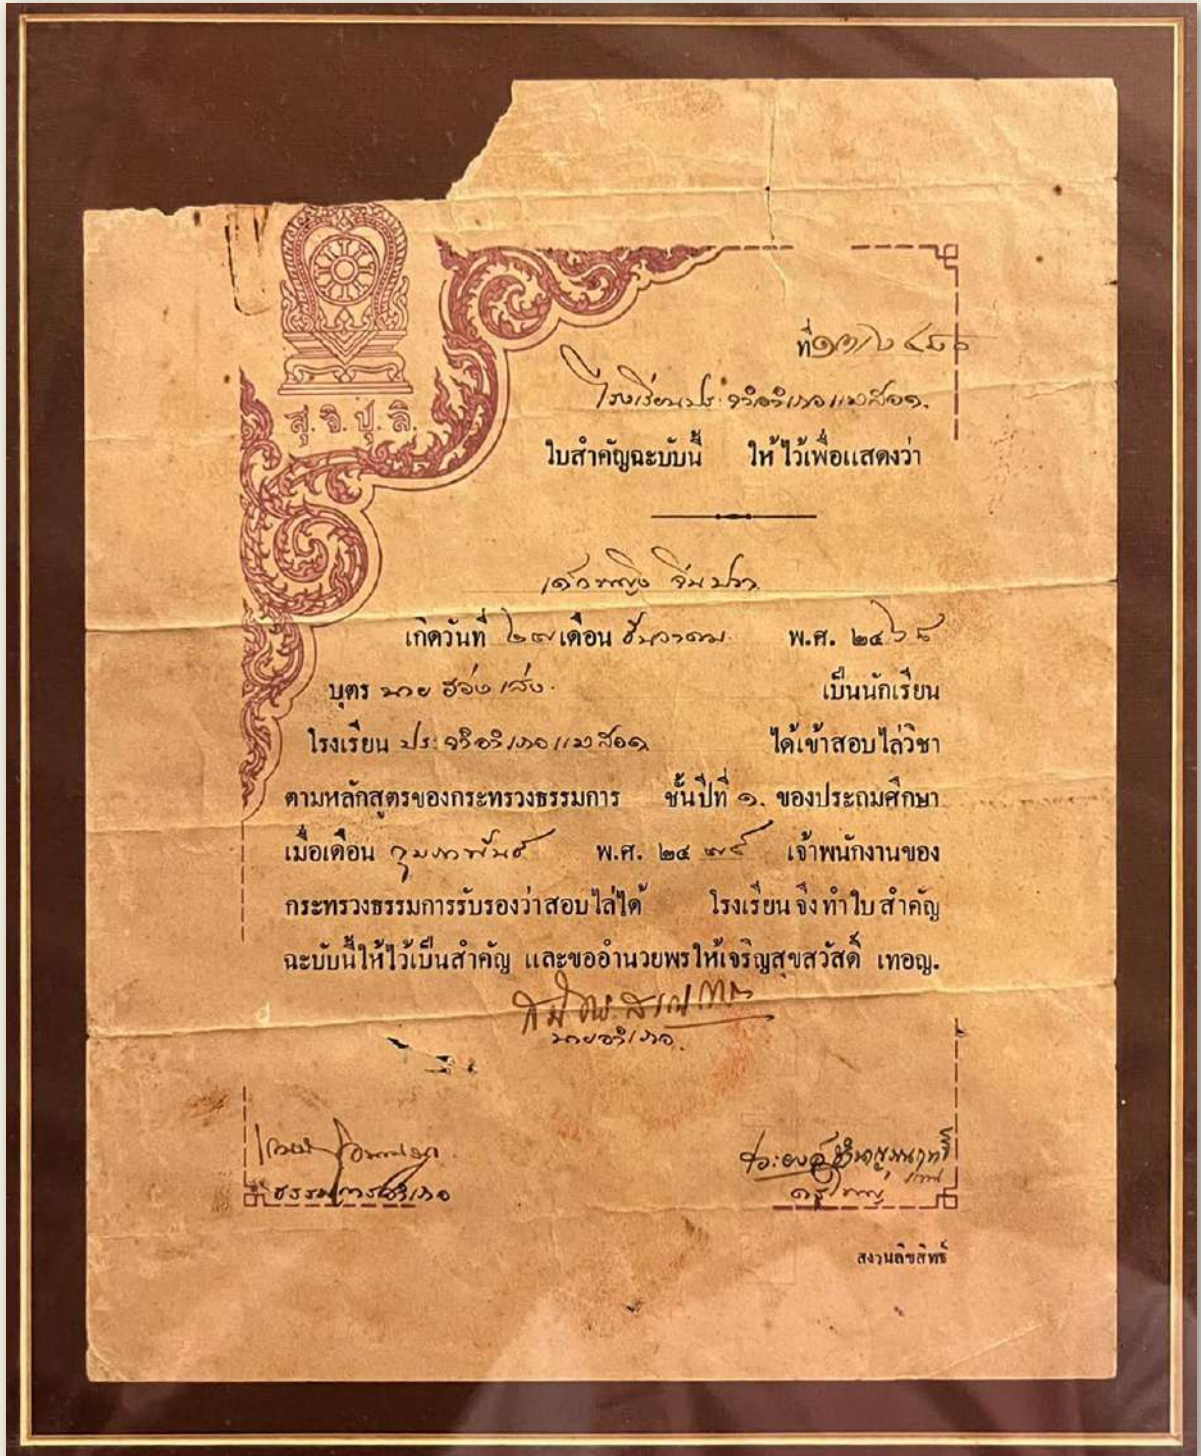 สุ. จิ. ปุ. ลิ.
ที่
โรงเรียนประจำอำเภอแม่สอด.
ใบสำคัญฉะบับนี้ ให้ไว้เพื่อแสดงว่า
เด็กหญิง
เกิดวันที่ ๒๗ เดือน ธันวาคม พ.ศ.
บุตร นาย ฮ่อง เส็ง. เป็นนักเรียน
โรงเรียน ประจำอำเภอแม่สอด ได้เข้าสอบไล่วิชา
ตามหลักสูตรของกระทรวงธรรมการ ชั้นปีที่ ๑. ของประถมศึกษา
เมื่อเดือน กุมภาพันธ์ พ.ศ. ๒๔ เจ้าพนักงานของ
กระทรวงธรรมการรับรองว่าสอบไล่ได้ โรงเรียน จึง ทำใบ สำคัญ
ฉะบับนี้ให้ไว้เป็นสำคัญ และขออำนวยพรให้เจริญสุขสวัสดิ์ เทอญ.
นายอำเภอ.
ธรรมการอำเภอ
ครูใหญ่
สงวนลิขสิทธิ์